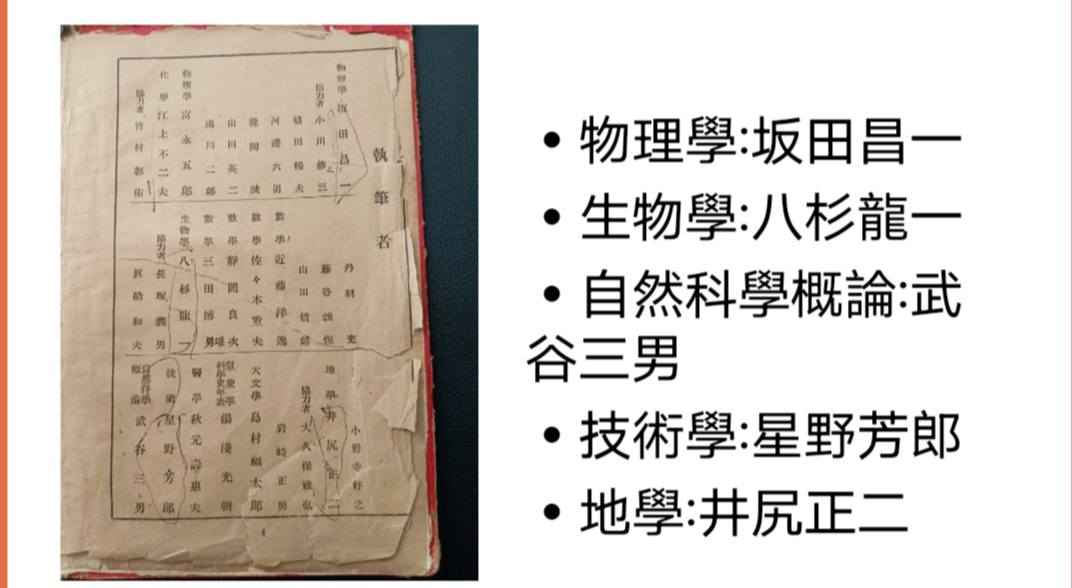 執筆者
物理學 坂田昌一
協力者 小川修三
河邊六男
龍岡誠
山田英二
湯川二郎
物理學 富永五郎
化學 江上不二夫
協力者 竹村彰祐
丹羽
山田
數學 近藤洋逸
數學 佐々木重夫
數學 靜間良次
數學 三田博雄
生物學 八杉龍一
協力者 長塚義男
眞船和夫
小野寺
地學 井尻正二
協力者 大久保雅弘
岩崎正男
天文學 島村福太郎
氣象學
科學史年表 湯淺光朝
醫學 秋元壽惠夫
技術 星野芳郎
自然科學概論 武谷三男
4
• 物理學:坂田昌一
• 生物學:八杉龍一
• 自然科學概論:武
谷三男
• 技術學:星野芳郎
• 地學:井尻正二